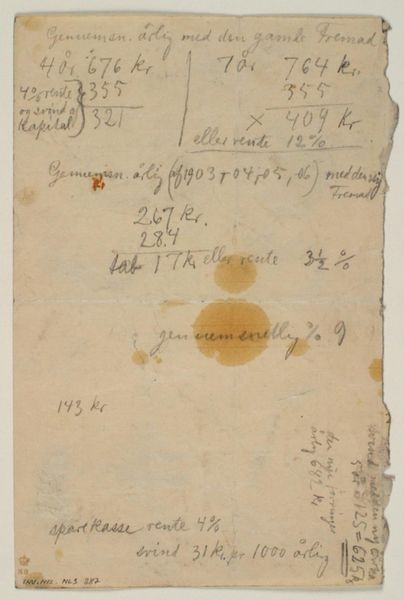 Gennemsn. årlig med den gamle Fremad
4 år 676 kr
355
321
4% rente og svind af Kapital
7 år 764 kr.
355
× 409 kr
eller rente 12%
Gennemsn. årlig (af 1903, 04, 05, 06) med den ny Fremad
267 kr.
284
tab 17 kr eller rente 3½ %
gennemsnitlig % 9
143 kr
årlig 682 kr
5 år à 125 = 625 kr
sparekasse rente 4%
svind 31 kr. pr 1000 årlig
INV. NR. NLS 287